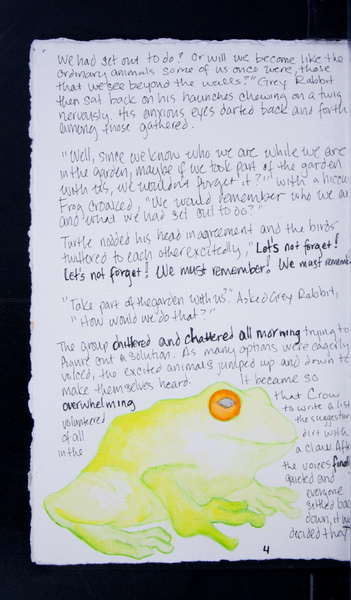 we had set out to do? Or will we become like the
ordinary animals some of us once were, those
that we see beyond the walls?" Grey Rabbit
then sat back on his haunches chewing on a twig
nervously. His anxious eyes darted back and forth
among those gathered.
"Well, since we know who we are while we are
in the garden, maybe if we took part of the garden
with us, we wouldn't forget it?" With a hiccup
Frog croaked, "We would remember who we are
and what we had set out to do?"
Turtle nodded his head in agreement and the birds
twittered to each other excitedly, "Let's not forget!
Let's not forget! We must remember! We must remember
"Take part of the garden with us?" Asked Grey Rabbit,
"How would we do that?"
The group chittered and chattered all morning trying to
figure out a solution. As many options were eagerly
voiced, the excited animals jumped up and down to
make themselves heard. It became so
overwhelming that Crow
volunteered to write a list
of all the suggestions
in the dirt with
a claw. After
the voices finally
quieted and
everyone
settled back
down, it was
decided that
4